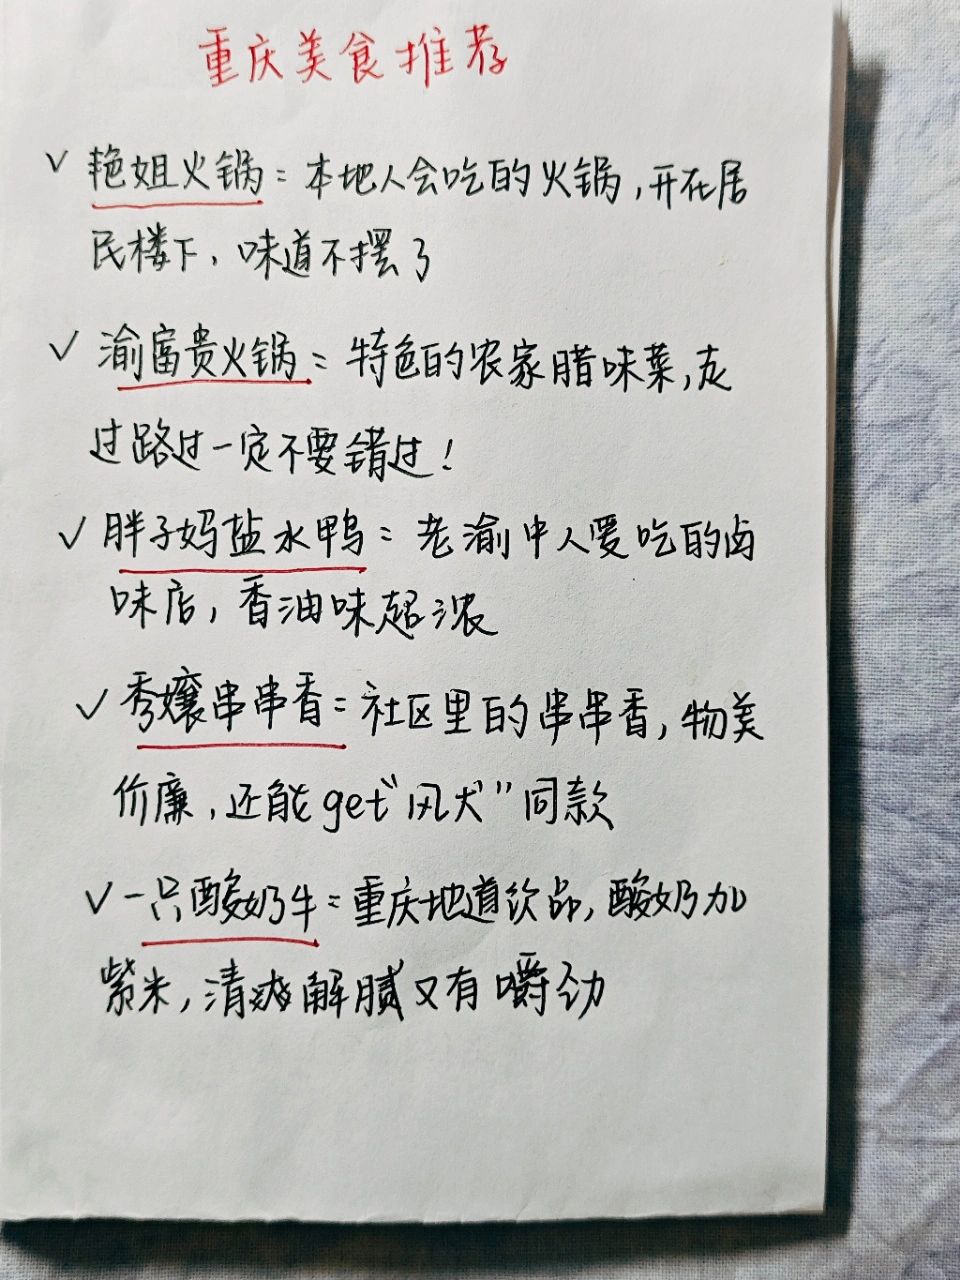 重庆美食推荐
√ 艳姐火锅：本地人会吃的火锅，开在居
民楼下，味道不摆了
√ 渝富贵火锅：特色的农家腊味菜，走
过路过一定不要错过！
√ 胖子妈盐水鸭：老渝中人爱吃的卤
味店，香油味超浓
√ 秀孃串串香：社区里的串串香，物美
价廉，还能get“风犬”同款
√ 一只酸奶牛：重庆地道饮品，酸奶加
紫米，清爽解腻又有嚼劲